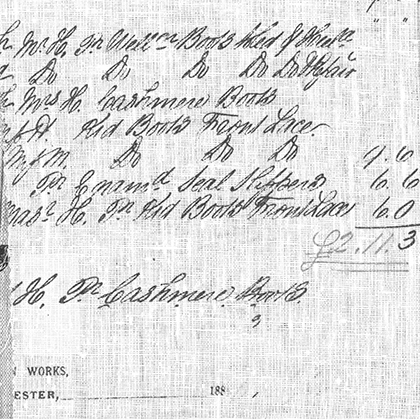 Mr H. Pr Well[tn] Boots Kid &
Do Do Do Do Do
Mrs H. Cashmere Boots
H Kid Boots Front Lace.
Do Do Do 9.6
Pr Enamd Seal Slippers 6.6
Masr H. Pr Kid Boots Front Lace 6.0
£2.11.3
H. Pr Cashmere Boots.
WORKS,
ESTER, 188 ,